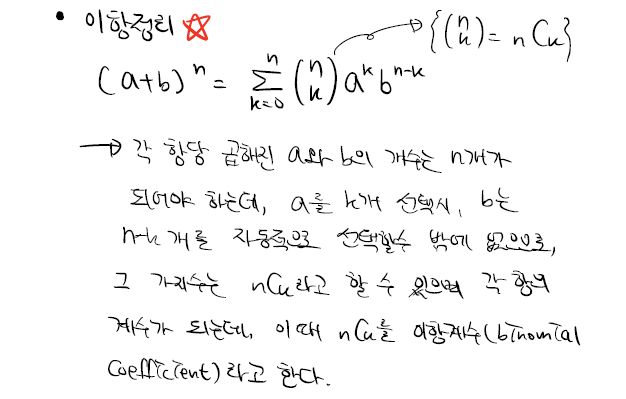 • 이항정리 ☆
{(n k) = nCk}
(a+b)^n = Σ_{k=0}^{n} (n k) a^k b^{n-k}
→ 각 항당 곱해진 a와 b의 개수는 n개가
되어야 하는데, a를 k개 선택시, b는
n-k개를 자동적으로 선택할수 밖에 없으므로,
그 가지수는 nCk라고 할 수 있으며 각 항의
계수가 되는데, 이때 nCk를 이항계수(binomial
coefficient)라고 한다.